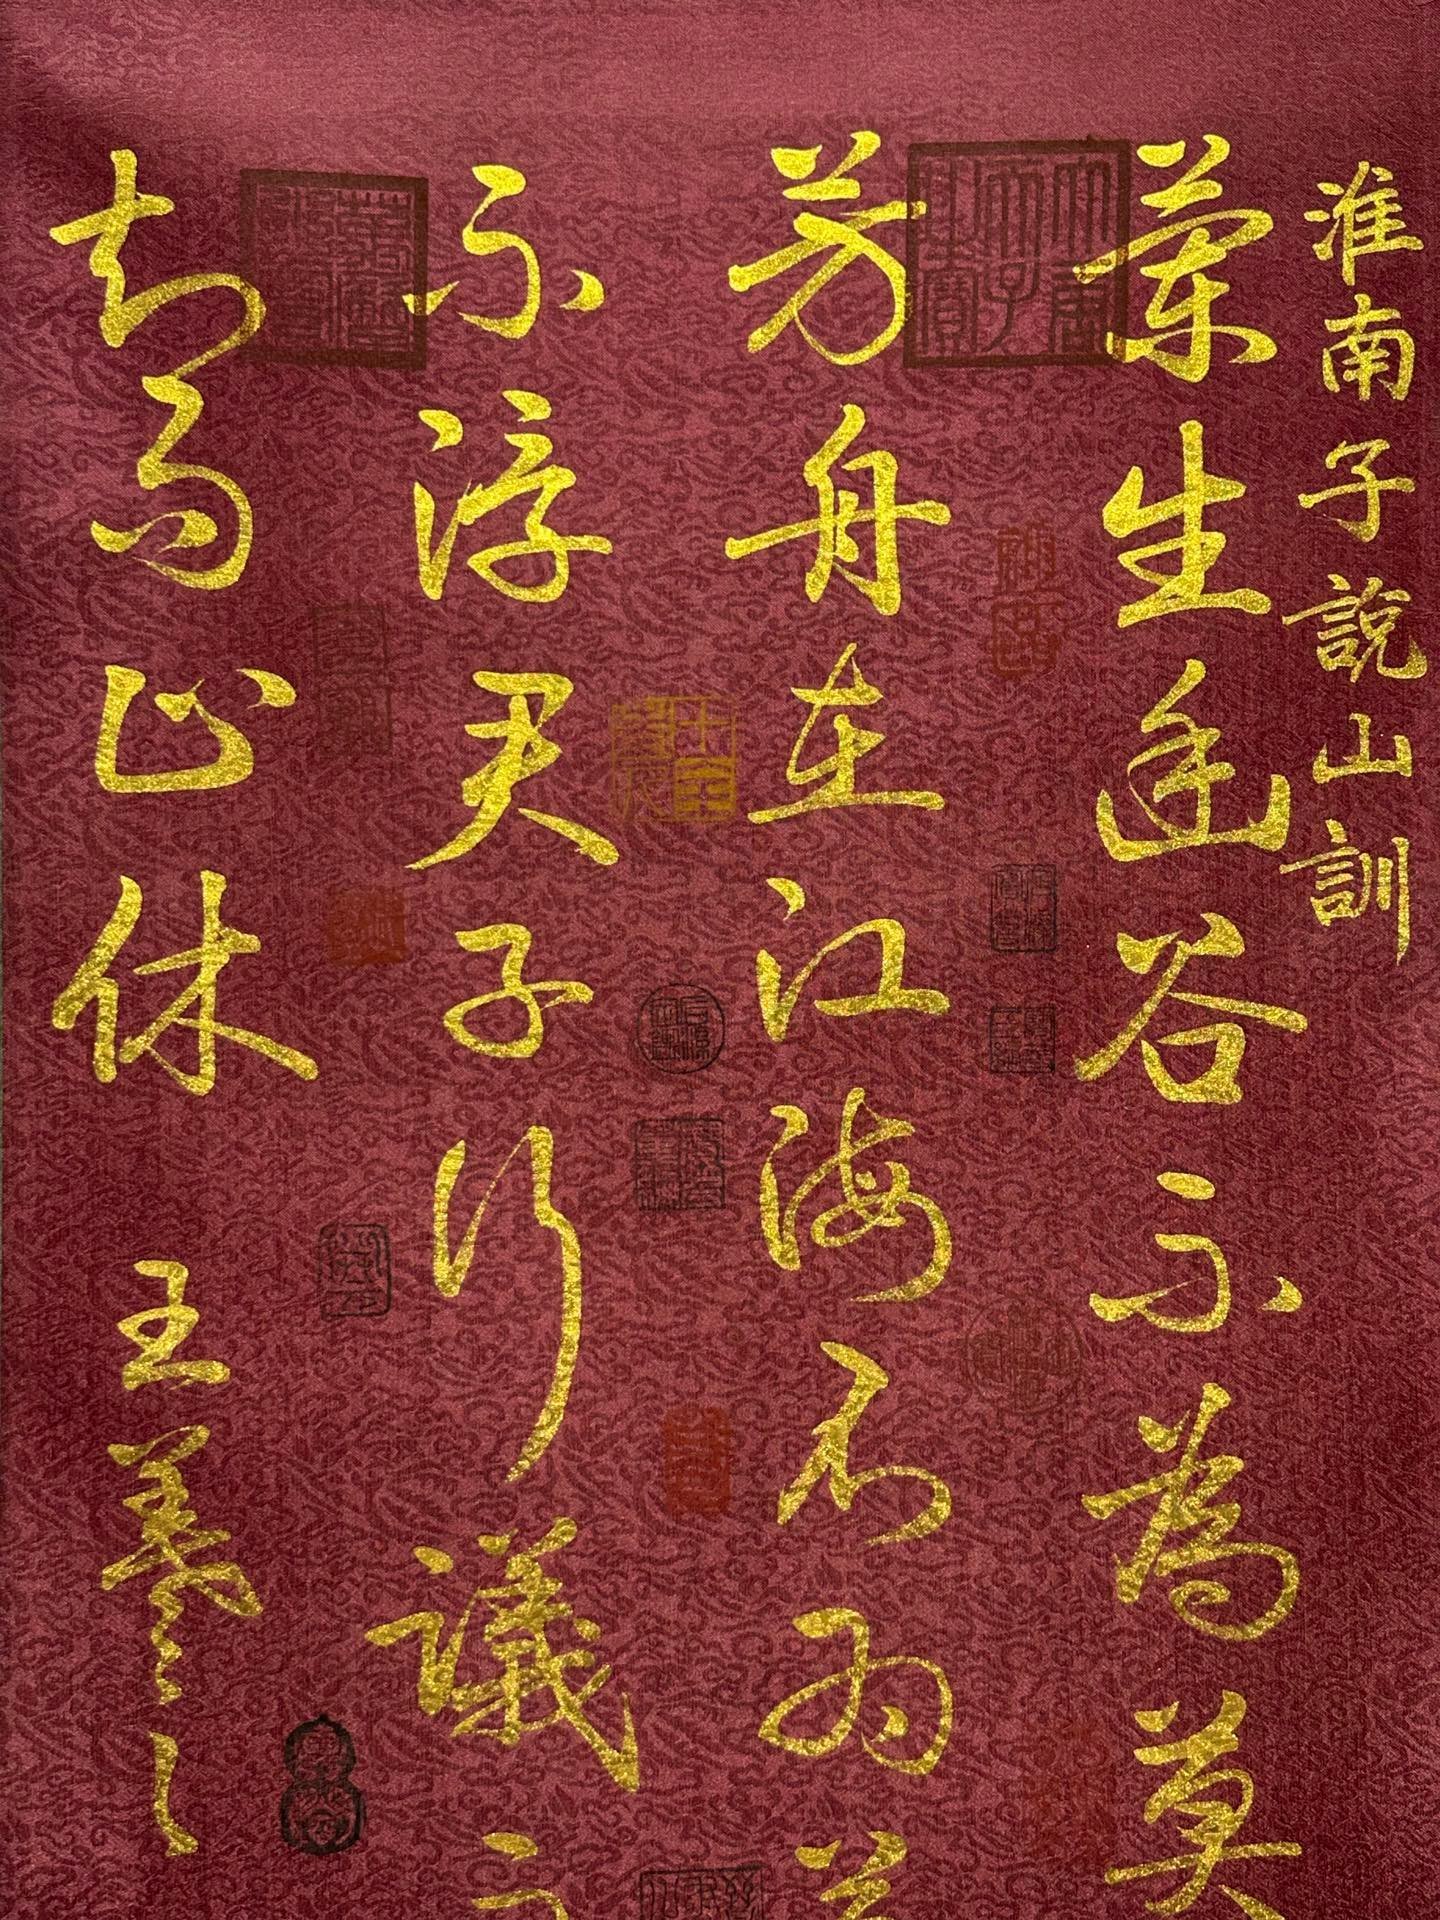 淮南子說山訓
蘭生幽谷不為莫
芳舟在江海不為
不浮君子行議
知而止休
王羲之